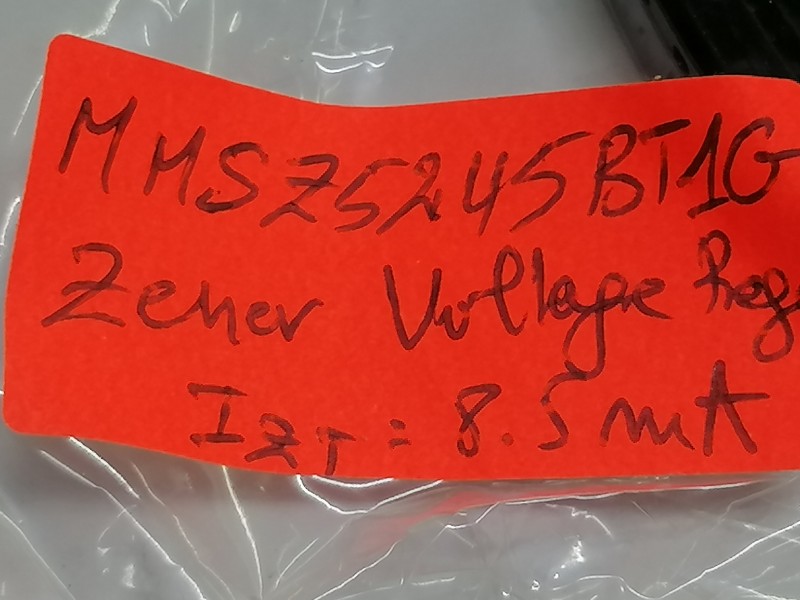 MMSZ5245BT1G
Zener Voltage Reg
IZT = 8.5 mA